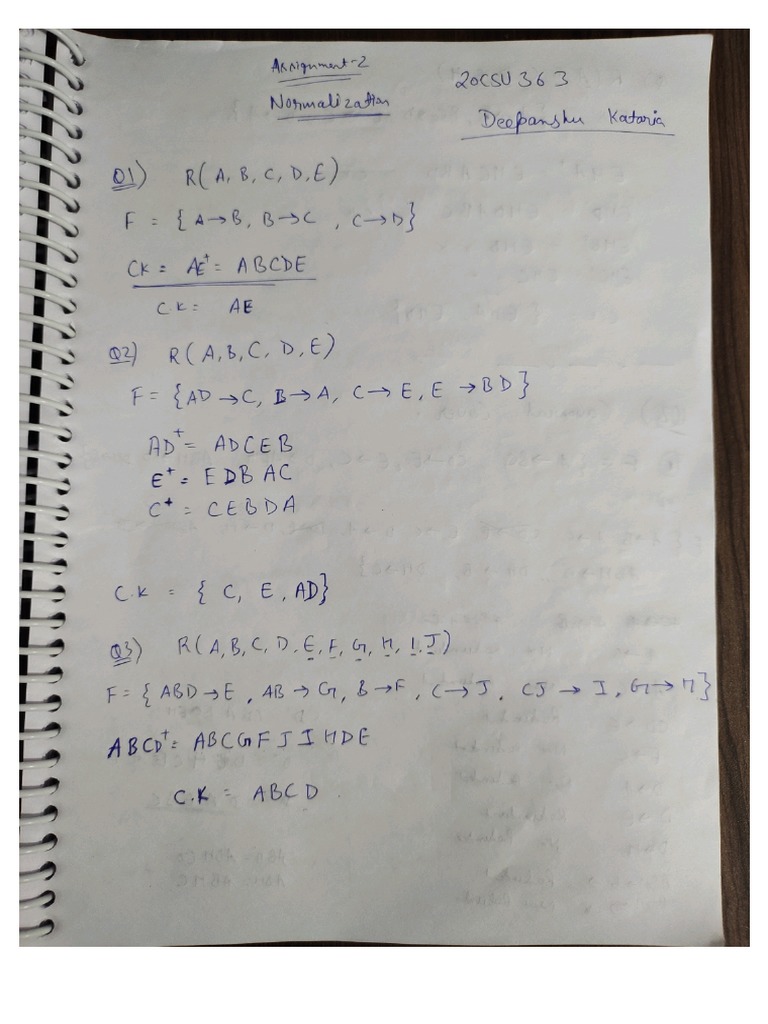 Assignment-2
Normalization
20CSU363
Deepanshu Kataria
Q1) R(A, B, C, D, E)
F = {A→B, B→C, C→D}
CK = AE⁺ = ABCDE
C.K = AE
Q2) R(A, B, C, D, E)
F = {AD→C, B→A, C→E, E→BD}
AD⁺ = ADCEB
E⁺ = EDBAC
C⁺ = CEBDA
C.K = {C, E, AD}
Q3) R(A, B, C, D, E, F, G, H, I, J)
F = {ABD→E, AB→G, B→F, C→J, CJ→I, G→H}
ABCD⁺ = ABCGFJIHDE
C.K = ABCD